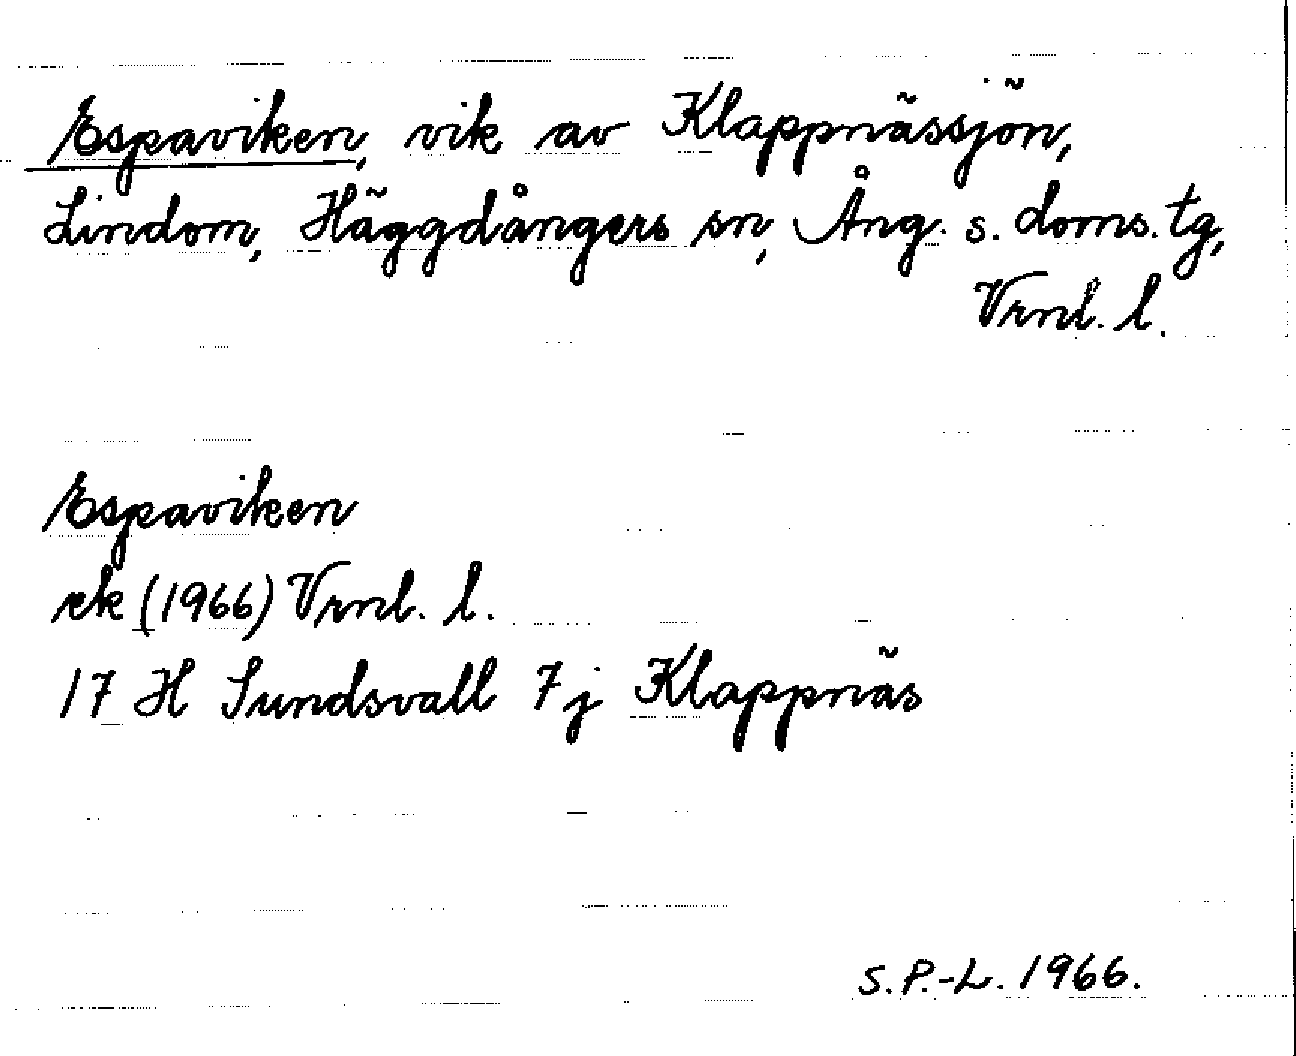 Espaviken, vik av Klappnässjön,
Lindom, Häggdångers sn, Ång. s. doms. tg,
Vrnl. l.
Espaviken
ek (1966) Vrnl. l.
17 H Sundsvall 7j Klappnäs
S.P.-L. 1966.